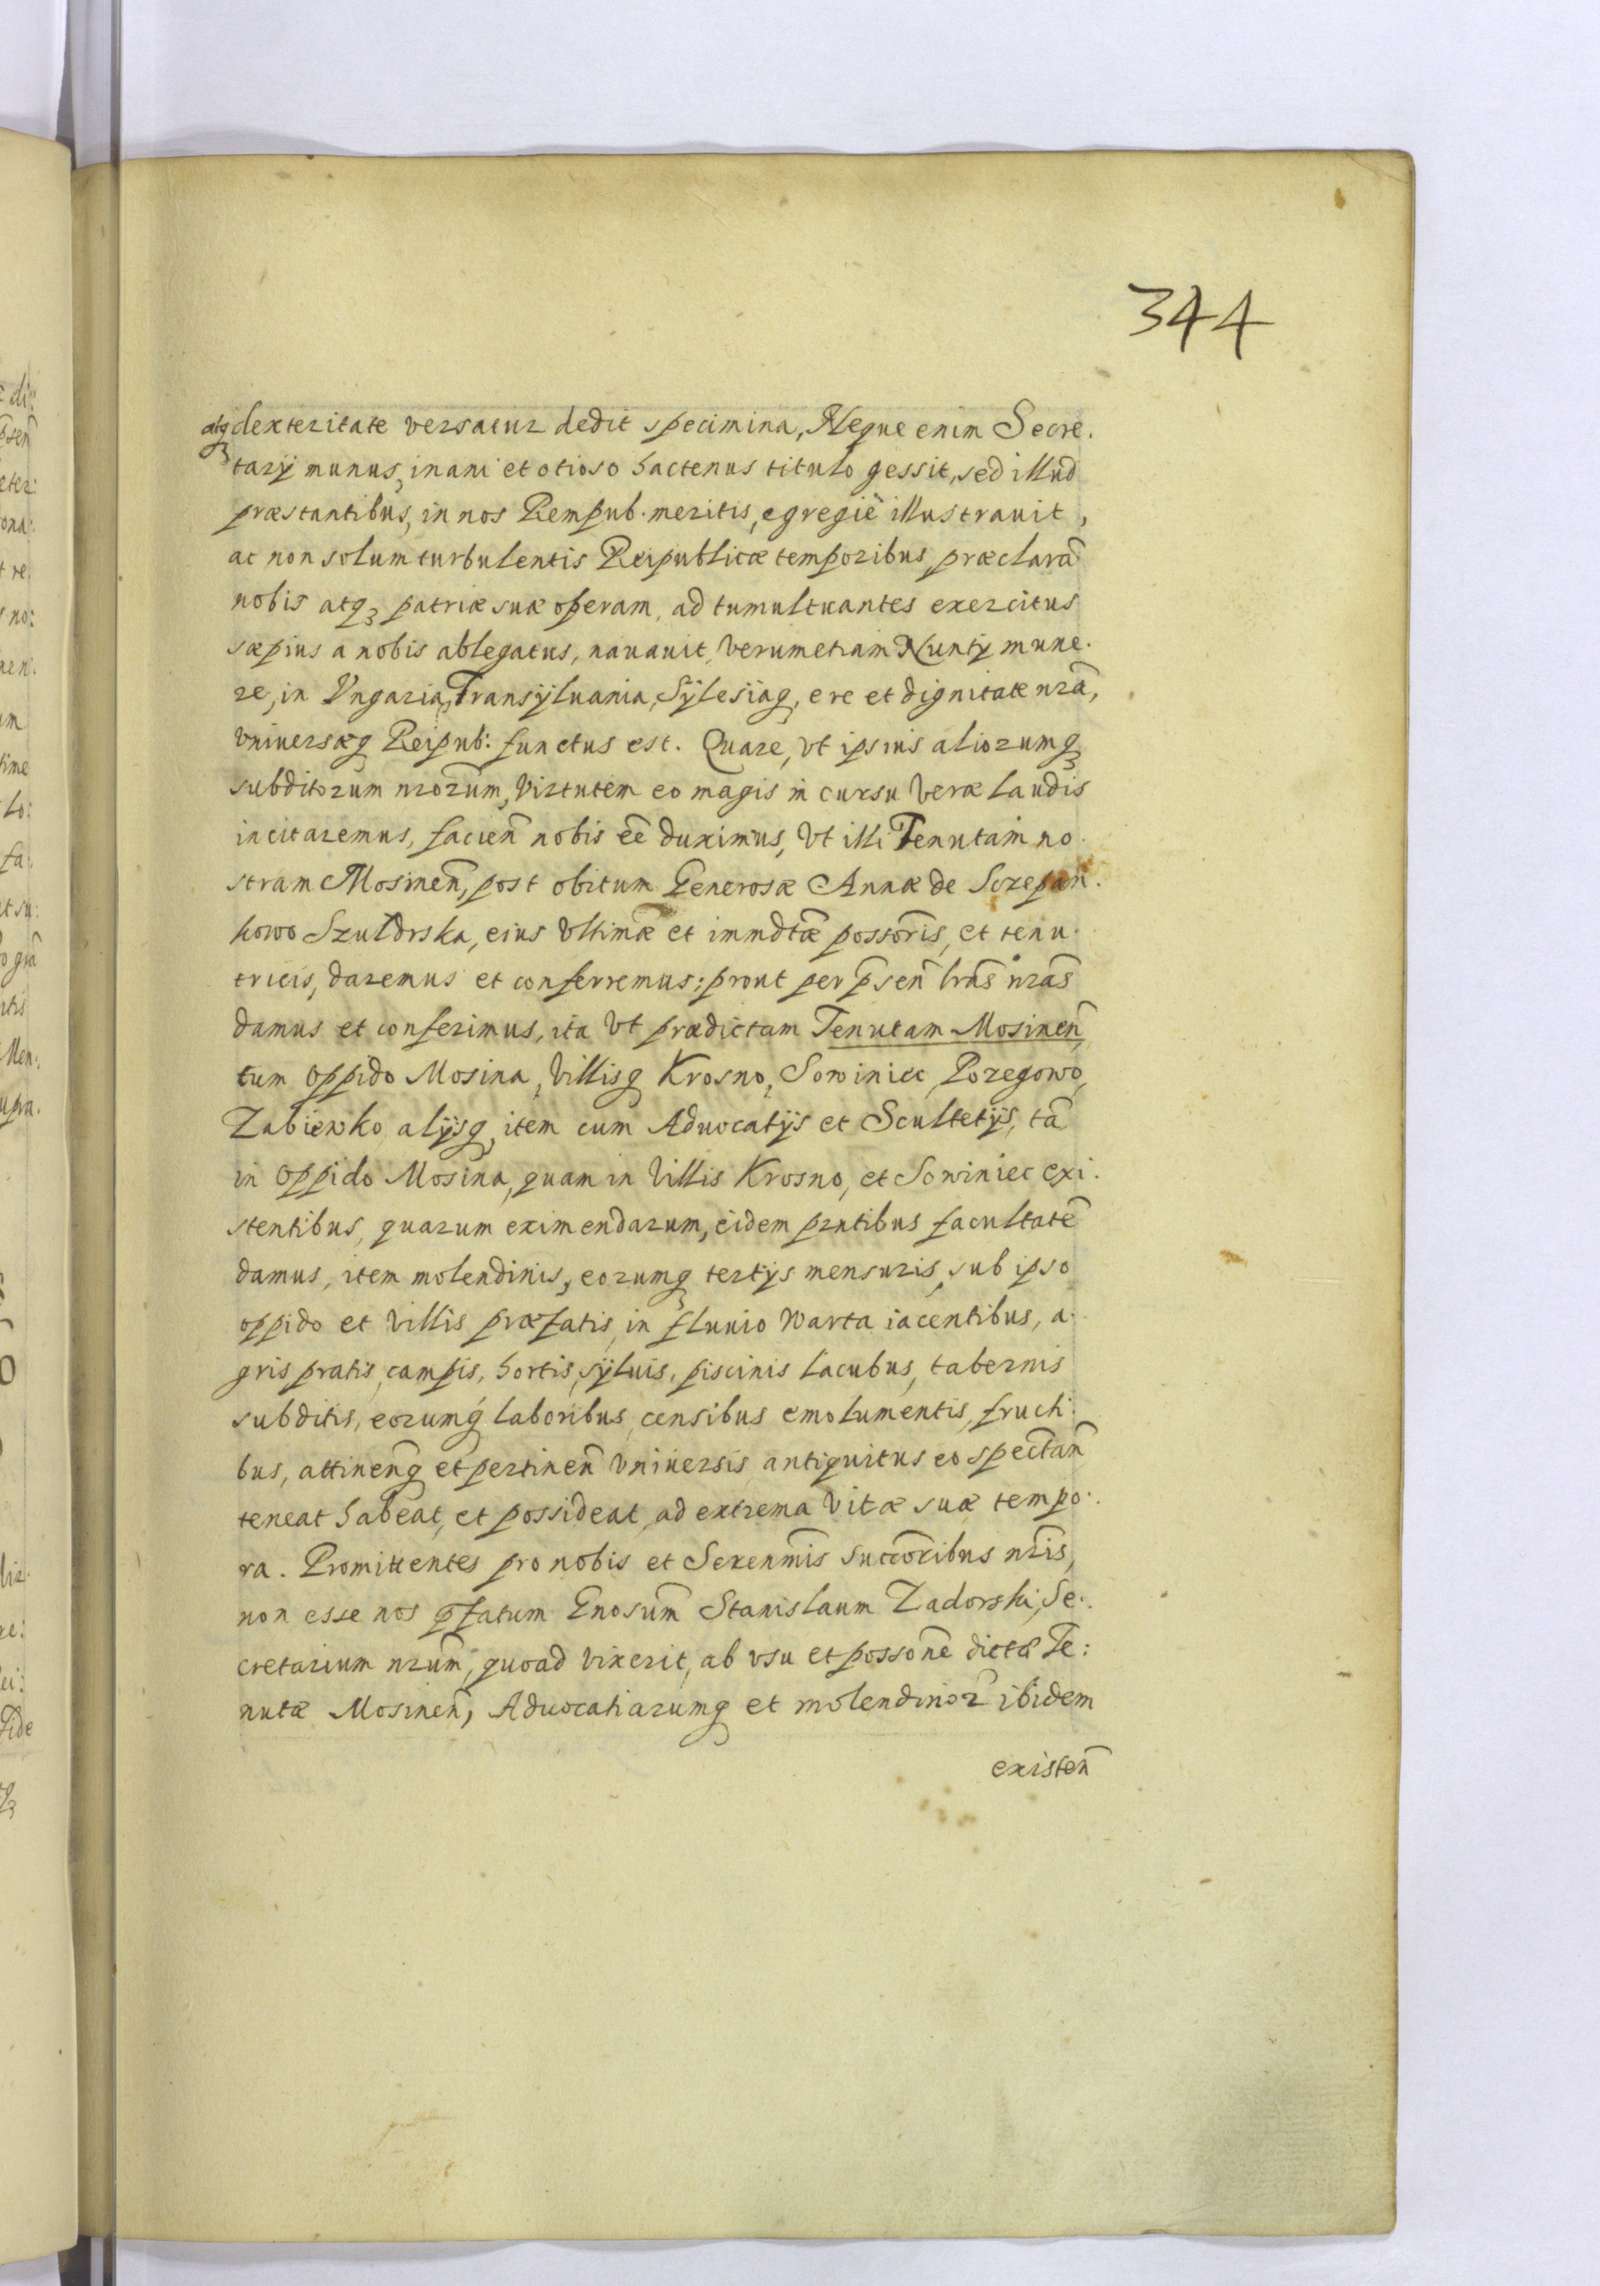 344
atq dexteritate versatur dedit specimina, Neque enim Secre.
tarij munus, inani et otioso hactenus titulo gessit, sed illud
præstantibus, in nos Rempub. meritis, egregiè illustrauit,
ac non solum turbulentis Reipublicæ temporibus præclarā
nobis atqȝ patriæ suæ operam, ad tumultuantes exercitus
sæpius a nobis ablegatus, nauauit, verumetiam Nuntij mune.
re, in Vngaria, Transyluania, Sylesiaq, e re et dignitate nrā,
vniuersæq Reipub: functus est. Quare, vt ipsius aliorumqȝ
subditorum nrorūm, virtutem eo magis in cursu veræ laudis
incitaremus, facien̄ nobis eē duximus, vt illi Tenutam no.
stram Mosinen̄, post obitum Generosæ Annæ de Sczepan.
kowo Szuldrska, eius vltimæ et immdtǣ possōris, et tenu.
tricis, daremus et conferremus: prout per p̄sen̄ lrās nrās
damus et conferimus, ita vt prædictam Tenutam Mosinen̄,
cum oppido Mosina, villisq Krosno, Sowiniec Pozegowo,
Zabienko alijsq, item cum Aduocatijs et Scultetijs, tā
in oppido Mosina, quam in villis Krosno, et Sowiniec exi.
stentibus, quarum eximendarum, eidem prntibus facultatē
damus, item molendinis, eorumqȝ tertijs mensuris, sub ipso
oppido et villis præfatis, in fluuio Warta iacentibus, a.
gris pratis, campis, hortis, syluis, piscinis lacubus, tabernis
subditis, eorumq́ laboribus, censibus emolumentis, fructi.
bus, attinen̄q et pertinen̄ vniuersis antiquitus eo spectan̄
teneat habeat, et possideat, ad extrema vitæ suæ tempo.
ra. Promittentes pro nobis et Serenm̄is Succōribus nrīs,
non esse nos p̄fatum Gnosūm Stanislaum Zadorski, Se.
cretarium nrūm, quoad vixerit, ab vsu et possōne dictæ Te:
nutæ Mosinen̄, Aduocatiarumq et molendinor̄ ibidem
existen̄